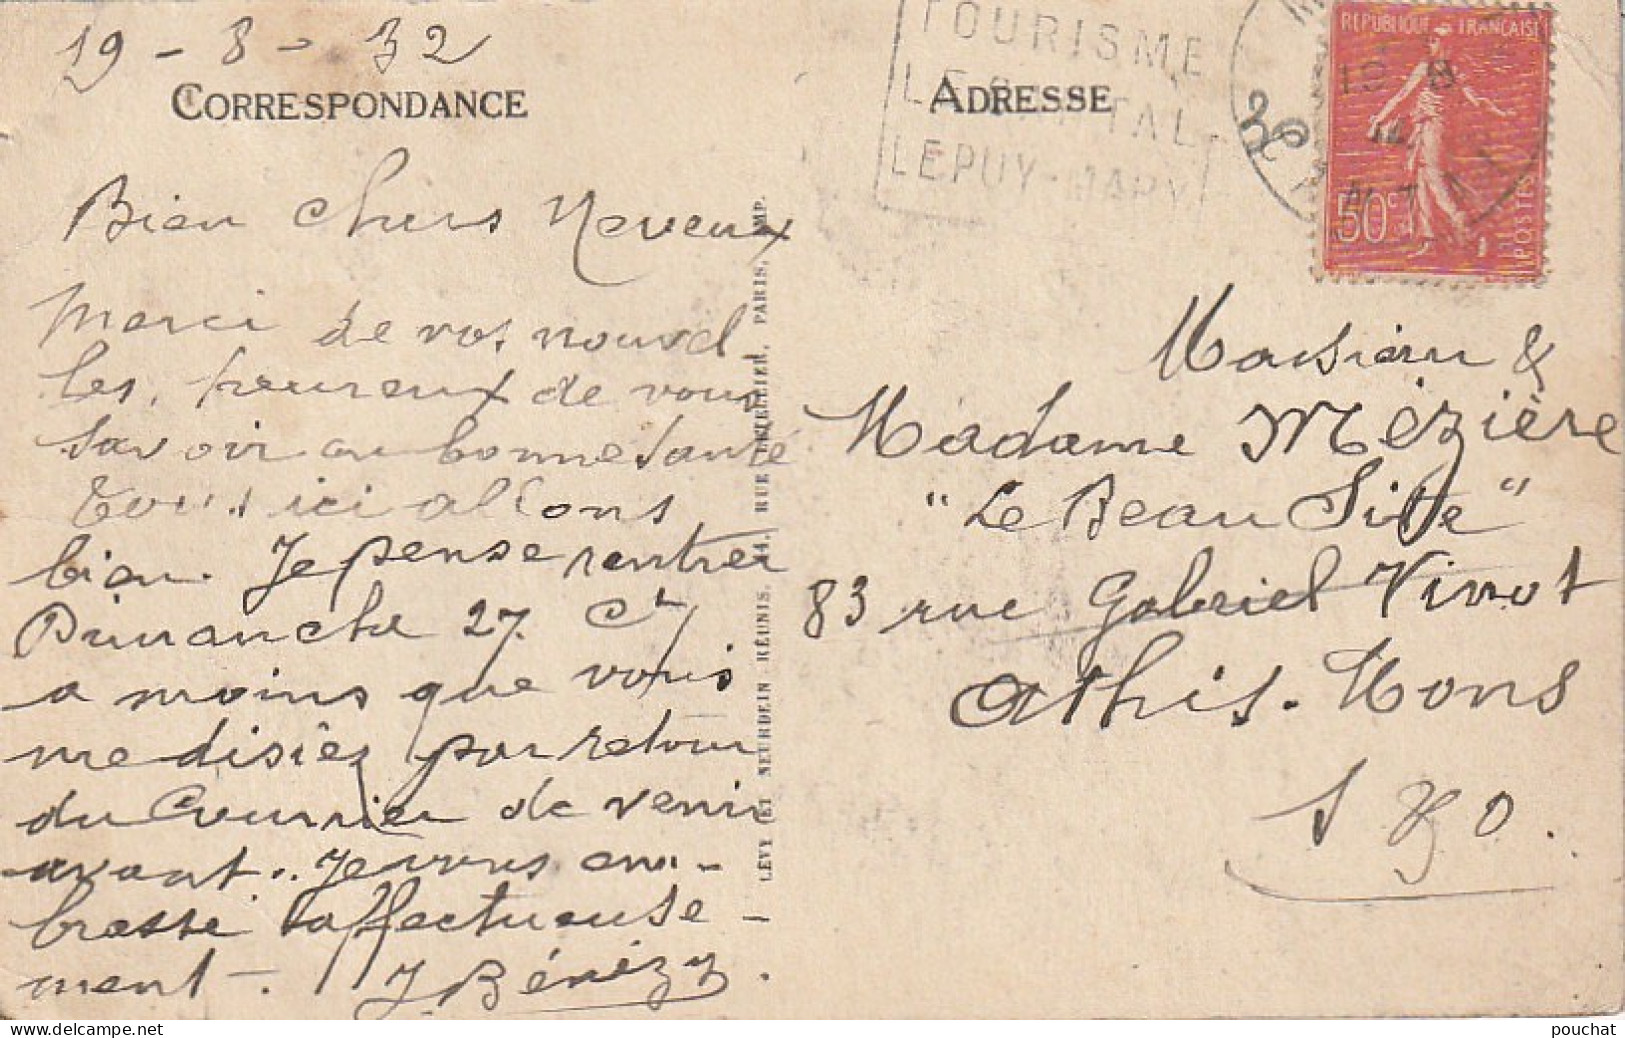 19 - 8 - 32
CORRESPONDANCE
Bien chers Neveux
Merci de vos nouvel
les, heureux de vous
savoir en bonne santé
Tous ici allons
bien. Je pense rentrer
Dimanche 27 Ct
a moins que vous
me disiez par retour
du Courrier de venir
avant.. Je vous em-
brasse affectueuse-
ment -. J Bénézy.
LEVY ET NEURDEIN RÉUNIS, 44, RUE LETELLIER, PARIS, IMP.
TOURISME
LE CANTAL
LE PUY-MARY
ADRESSE
REPUBLIQUE FRANÇAISE
19 8
50c
POSTES
Monsieur &
Madame Mézière
"Le Beau Site"
83 rue Gabriel Vinot
Athis-Mons
S &O.
pouchat